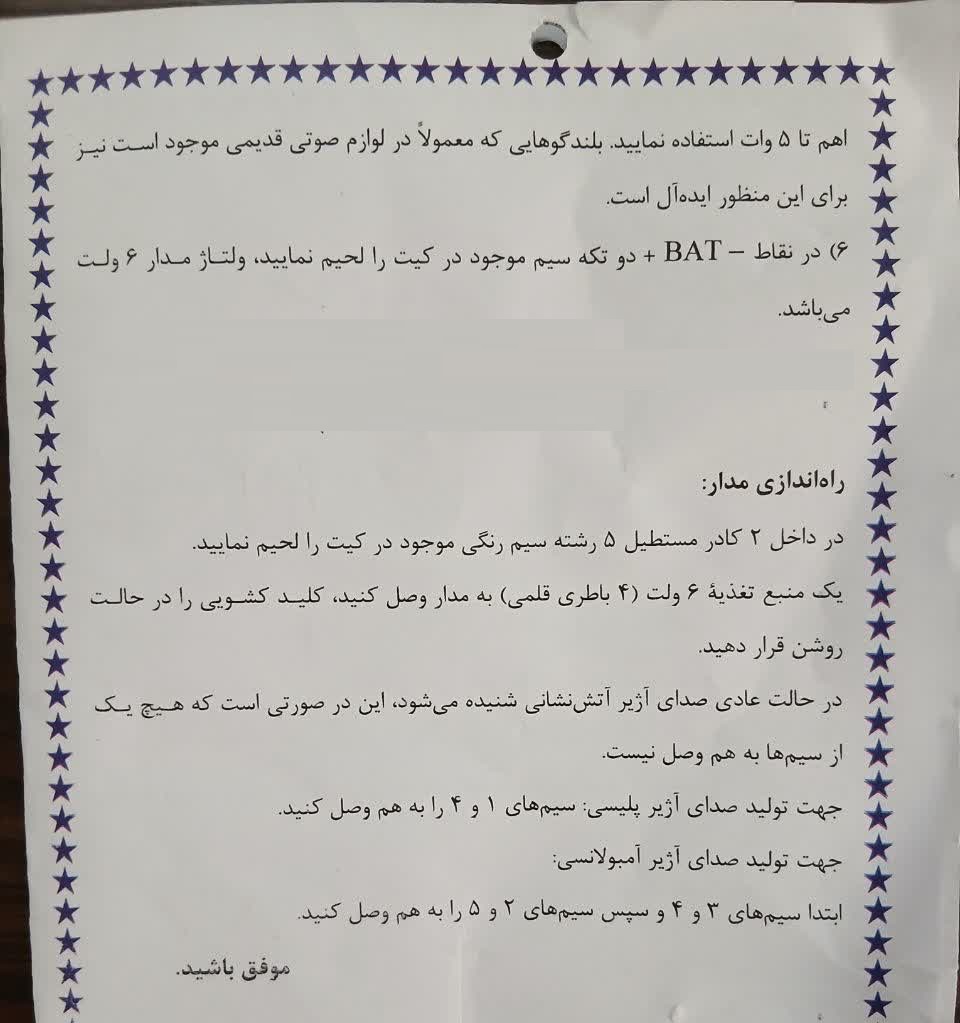 اهم تا ۵ وات استفاده نمایید. بلندگوهایی که معمولاً در لوازم صوتی قدیمی موجود است نیز
برای این منظور ایده‌آل است.
۶) در نقاط – BAT + دو تکه سیم موجود در کیت را لحیم نمایید، ولتاژ مدار ۶ ولت
می‌باشد.
راه‌اندازی مدار:
در داخل ۲ کادر مستطیل ۵ رشته سیم رنگی موجود در کیت را لحیم نمایید.
یک منبع تغذیهٔ ۶ ولت (۴ باطری قلمی) به مدار وصل کنید، کلید کشویی را در حالت
روشن قرار دهید.
در حالت عادی صدای آژیر آتش‌نشانی شنیده می‌شود، این در صورتی است که هیچ یک
از سیم‌ها به هم وصل نیست.
جهت تولید صدای آژیر پلیسی: سیم‌های ۱ و ۴ را به هم وصل کنید.
جهت تولید صدای آژیر آمبولانسی:
ابتدا سیم‌های ۳ و ۴ و سپس سیم‌های ۲ و ۵ را به هم وصل کنید.
موفق باشید.